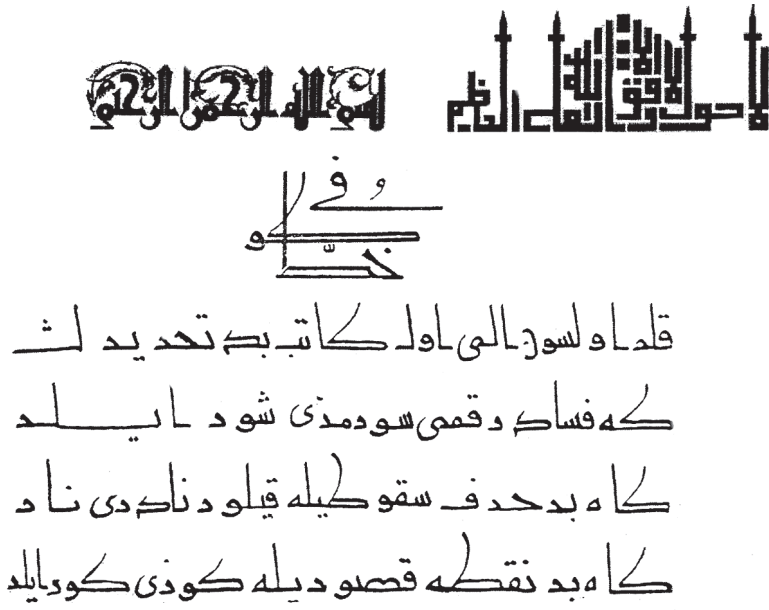 لا حول ولا قوة الا بالله العلى العظيم
بسم الله الرحمن الرحيم
خط كوفى
قلم اولسون الى اول كاتب بد تحريرك
كه فساد رقمى سوزمزى شور ايلر
كاه بر حرف سقوطيله قيلور نادرى نار
كاه بر نقطه قصوريله كوزى كور ايلر